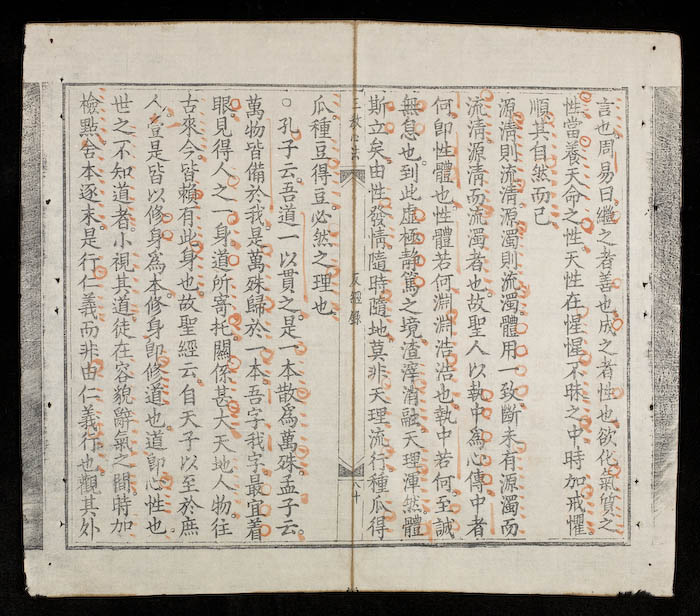 言也周易曰繼之者善也成之者性也欲化氣質之
性當養天命之性天性在惺惺不昧之中時加戒懼
順其自然而已
源清則流清源濁則流濁體用一致斷未有源濁而
流清源清而流濁者也故聖人以執中爲心傳中者
何即性體也性體若何淵淵浩浩也執中若何至誠
無息也到此虛極靜篤之境渣滓消融天理渾然體
斯立矣由性發情隨時隨地莫非天理流行種瓜得
三教心法
反經錄
六十
瓜種豆得豆必然之理也
○孔子云吾道一以貫之是一本散爲萬殊孟子云
萬物皆備於我是萬殊歸於一本吾字我字最宜着
眼見得人之一身道所寄托關係甚大天地人物往
古來今皆賴有此身也故聖經云自天子以至於庶
人壹是皆以修身爲本修身即修道也道即心性也
世之不知道者小視其道徒在容貌辭氣之間時加
檢點舍本逐末是行仁義而非由仁義行也觀其外